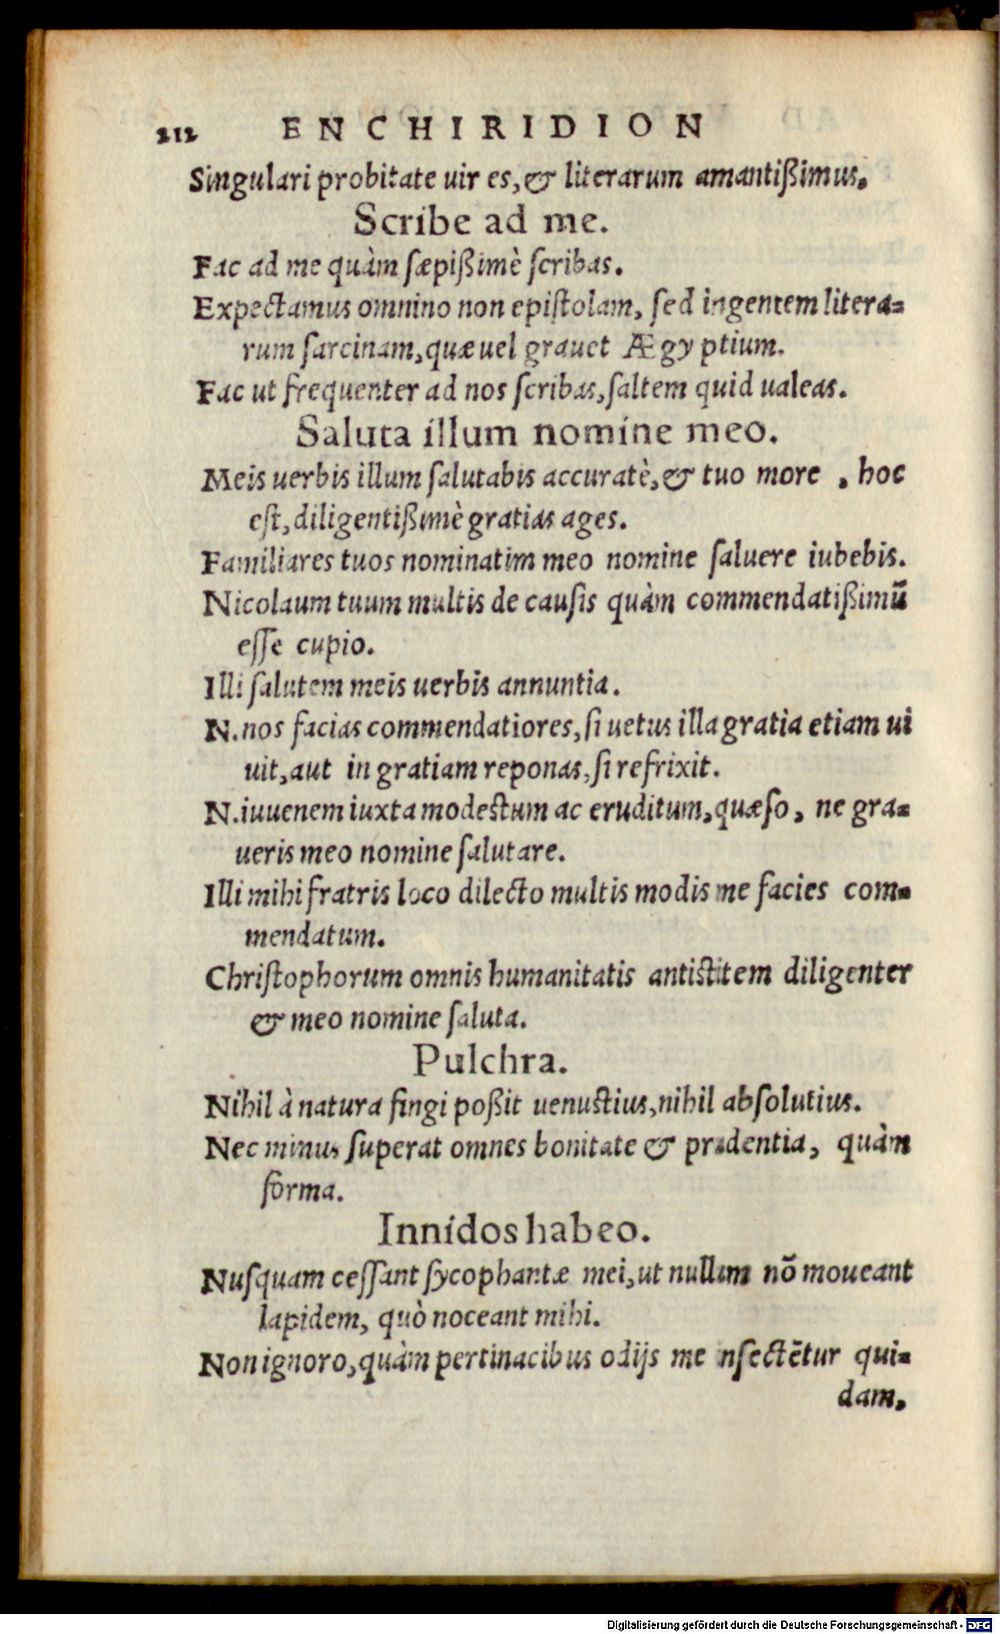 212 ENCHIRIDION
Singulari probitate uir es, & literarum amantißimus.
Scribe ad me.
Fac ad me quàm sæpißimè ſcribas.
Expectamus omnino non epiſtolam, ſed ingentem litera-
rum ſarcinam, quæ uel grauet Ægyptium.
Fac ut frequenter ad nos ſcribas, ſaltem quid ualeas.
Saluta illum nomine meo.
Meis uerbis illum ſalutabis accuratè, & tuo more , hoc
eſt, diligentißimè gratias ages.
Familiares tuos nominatim meo nomine ſaluere iubebis.
Nicolaum tuum multis de cauſis quàm commendatißimū
eſſe cupio.
Illi ſalutem meis uerbis annuntia.
N. nos facias commendatiores, ſi uetus illa gratia etiam ui
uit, aut in gratiam reponas, ſi refrixit.
N. iuuenem iuxta modestum ac eruditum, quæſo, ne gra-
ueris meo nomine ſalutare.
Illi mihi fratris loco dilecto multis modis me facies com-
mendatum.
Chriſtophorum omnis humanitatis antistitem diligenter
& meo nomine ſaluta.
Pulchra.
Nihil à natura fingi poßit uenustius, nihil abſolutius.
Nec minus ſuperat omnes bonitate & prudentia, quàm
forma.
Innidos habeo.
Nuſquam ceſſant ſycophantæ mei, ut nullum nō moueant
lapidem, quò noceant mihi.
Non ignoro, quàm pertinacibus odijs me inſectētur qui-
dam,
Digitalisierung gefördert durch die Deutsche Forschungsgemeinschaft - DFG